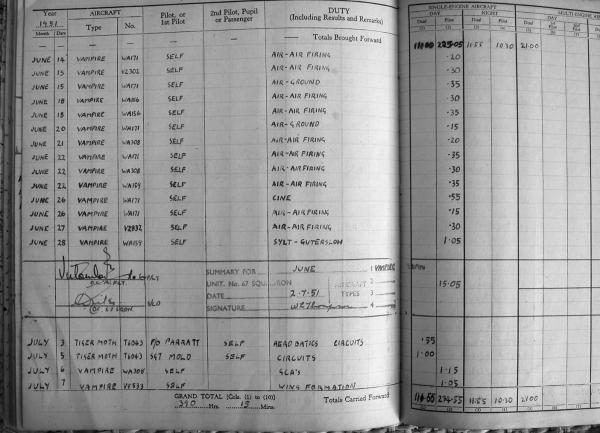 Year AIRCRAFT Pilot, or 2nd Pilot, Pupil DUTY SINGLE-ENGINE AIRCRAFT MULTI-ENGINE
1951 1st Pilot or Passenger (Including Results and Remarks) DAY NIGHT DAY
Month Date Type No. Dual Pilot Dual Pilot Dual
— — — Totals Brought Forward 225.05 11.55 10.30 21.00
JUNE 14 VAMPIRE WA171 SELF AIR-AIR FIRING .20
JUNE 15 VAMPIRE VZ302 SELF AIR-AIR FIRING .30
JUNE 15 VAMPIRE WA171 SELF AIR-GROUND .35
JUNE 18 VAMPIRE WA186 SELF AIR-AIR FIRING .30
JUNE 18 VAMPIRE WA156 SELF AIR-AIR FIRING .35
JUNE 20 VAMPIRE WA171 SELF AIR-GROUND .15
JUNE 21 VAMPIRE WA308 SELF AIR-AIR FIRING .20
JUNE 22 VAMPIRE WA171 SELF AIR-AIR FIRING .35
JUNE 22 VAMPIRE WA308 SELF AIR-AIR FIRING .30
JUNE 22 VAMPIRE WA159 SELF AIR-AIR FIRING .35
JUNE 26 VAMPIRE WA171 SELF CINE .55
JUNE 26 VAMPIRE WA171 SELF AIR-AIR FIRING .15
JUNE 27 VAMPIRE SELF AIR-AIR FIRING .30
JUNE 28 VAMPIRE WA159 SELF SYLT - GUTERSLOH 1.05
SUMMARY FOR JUNE 1 VAMPIRE
UNIT. No. 67 SQUADRON AIRCRAFT 2 15.05
DATE 2-7-51 TYPES 3
SIGNATURE 4
JULY 3 TIGER MOTH T6043 P/O PARRATT SELF AEROBATICS CIRCUITS .55
JULY 5 TIGER MOTH T6043 SGT MOLD SELF CIRCUITS 1.00
JULY 6 VAMPIRE WA308 SELF GCA'S 1.15
JULY 7 VAMPIRE VV533 SELF WING FORMATION 1.05
GRAND TOTAL (Cols. (1) to (10)) Totals Carried Forward 11.55 10.30 21.00
390 Hrs. 15 Mins.